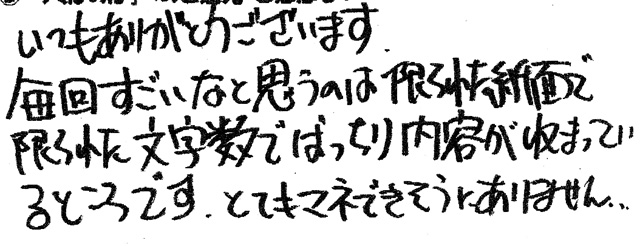 いつもありがとうございます.
毎回すごいなと思うのは限られた紙面で
限られた文字数でばっちり内容が収まってい
るところです.とてもマネできそうにありません..